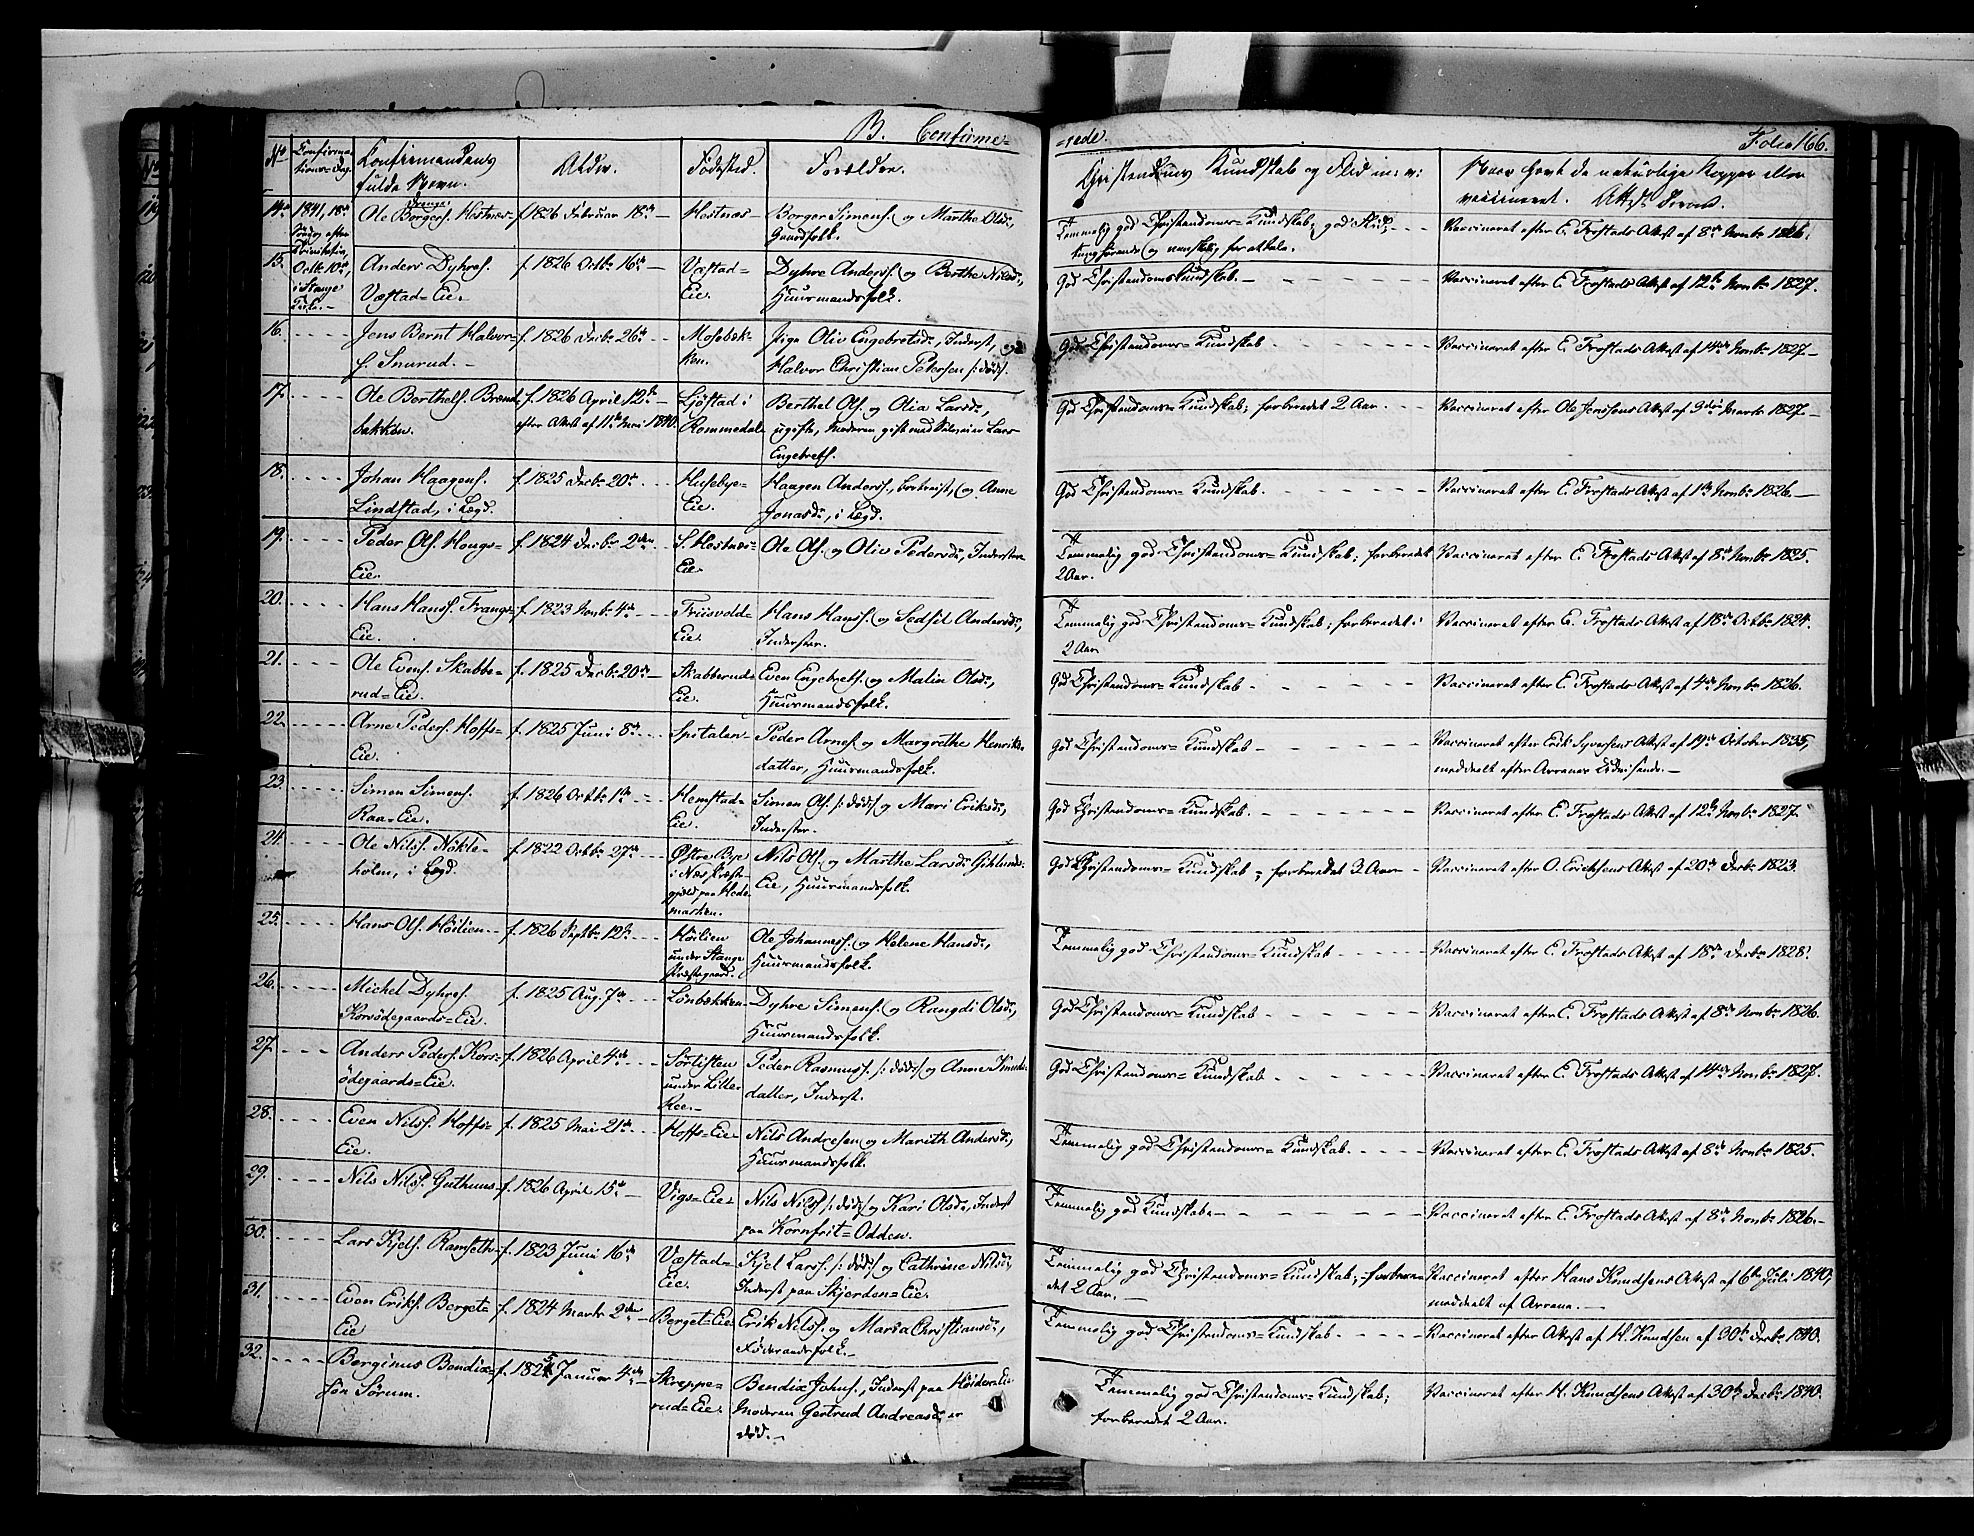 B. Confirme=
=rede. Folio 166.
No Confirma
tions=Dag. Konfirmandens
fulde Navn. Alder. Födested. Forældre. Christendoms Kundskab og Flid m: v: Naar havt de naturlige Kopper eller
vaccineret. Attest derom.
14. 1841, 18de
Söndag efter
Trinitatis,
Octbr 10de,
i Stange
Kirke.
Drenge
Ole Borgers. Hestnæs f. 1826 Februar 18de Hestnæs Borger Simens. og Marthe Olsdr,
Gaardfolk.
Temmelig god Christendoms=Kundskab; god Flid;
Vaccineret efter E. Frostads Attest af 8de Novbr 1826.
15. Anders Dyhres.
Væstad=Eie. f. 1826 Octbr 16de Væstad=
Eie. Dyhre Anders. og Berthe Nilsdr,
Huusmandsfolk. God Christendomskundskab. Vaccineret efter E. Frostads Attest af 12te Novbr 1827.
16. Jens Bernt Halvor=
s. Snurud. f. 1826 Decbr 26de Mosebæk=
ken. Pige Oliv Engebretsdr, Inderst, og
Halvor Christian Petersen /: död :/ God Christendoms=Kundskab Vaccineret efter E. Frostads Attest af 14de Novbr 1827
17. Ole Berthels. Brænd=
bakken. f. 1826 April 12te
efter Attest af 11te Mai 1840. Ljöstad i
Rommedal Berthel Ols. og Olia Larsdr,
ugifte, Moderen gift med Lars
Engebrets. God Christendoms=Kundskab; forberedet 2 Aar. Vaccineret efter Ole Jenssens Attest af 9de Marts 1827
18. Johan Haagens.
Lindstad, i Lægd. f. 1825 Decbr 20de Husebye=
Eie. Haagen Anders., bortreist, og Anne
Jonasdr, i Lægd. God Christendoms=Kundskab. Vaccineret efter E. Frostads Attest af 1ste Novbr 1826
19. Peder Ols. Hougs=
Eie. f. 1824 Decbr 2den S. Hestnæs=
Eie. Ole Ols. og Oliv Pedersdr, Inderster Temmelig god Christendoms=Kundskab; forberedet
2 Aar. Vaccineret efter E. Frostads Attest af 8de Novbr 1825.
20. Hans Hans. Frangs=
Eie. f. 1823 Novbr 4de Friisvold=
Eie. Hans Hans. og Sedsil Andersdr,
Inderster. Temmelig god Christendoms=Kundskab; forberedet i
2 Aar Vaccineret efter E. Frostads Attest af 18de Octbr 1824.
21. Ole Evens. Skabbe=
rud=Eie. f. 1825 Decbr 20de Skabberud=
Eie. Even Engebrets. og Malia Olsdr,
Huusmandsfolk. God Christendoms=Kundskab Vaccineret efter E. Frostads Attest af 4de Novbr 1826.
22. Arne Peders. Hoffs=
Eie. f. 1825 Juni 8de Spitalen Peder Arnes. og Margrethe Henriks=
datter, Huusmandsfolk. God Christendoms=Kundskab Vaccineret efter Erik Syversens Attest af 19de October 1835,
meddeelt efter Arrenes Udvisende.
23. Simen Simens.
Raa=Eie. f. 1826 Octbr 1ste Hemstad=
Eie. Simen Ols. /: död :/ og Mari Eriksdr,
Inderster. God Christendoms=Kundskab. Vaccineret efter E. Frostads Attest af 12te Novbr 1827.
24. Ole Nils. Nökle=
holen, i Lægd. f. 1822 Octbr 27de Østre Bye
i Næs Præste=
gjæld paa Hede=
marken. Nils Ols. og Marthe Larsdr Gihlunds=
Eie, Huusmandsfolk. God Christendoms=Kundskab; forberedet 3 Aar Vaccineret efter O. Erichsens Attest af 20de Decbr 1823.
25. Hans Ols. Höilien f. 1826 Septbr 12te Höilien
under Stange
Præstegaard. Ole Johannes. og Helene Hansdr,
Huusmandsfolk. Temmelig god Christendoms=Kundskab Vaccineret efter E. Frostads Attest af 18de Decbr 1828.
26. Michel Dyhres.
Korsödegaards=Eie. f. 1825 Aug. 7de Lönbækken Dyhre Simens. og Rangdi Olsdr,
Huusmandsfolk. God Christendoms=Kundskab Vaccineret efter E. Frostads Attest af 8de Novbr 1826.
27. Anders Peders. Kors=
ödegaards=Eie. f. 1826 April 4de Sörlisten
under Lille
Ree. Peder Rasmuss. /: död :/ og Anne Knuds=
datter, Inderst. God Christendoms=Kundskab Vaccineret efter E. Frostads Attest af 14de Novbr 1827.
28. Even Nils. Hoffs=
Eie. f. 1825 Mai 21de Hoffs=Eie Nils Andresen og Marith Andersdr,
Huusmandsfolk. Temmelig god Christendoms=Kundskab. Vaccineret efter E. Frostads Attest af 8de Novbr 1825.
29. Nils Nils. Guthuus f. 1826 April 15de Vigs=Eie Nils Nils. /: död :/ og Kari Olsdr, Inderst
paa Kornfrit=Odden. Temmelig god Kundskab Vaccineret efter E. Frostads Attest af 8de Novbr 1826.
30. Lars Kjels. Ramseth f. 1823 Juni 16de Væstad=
Eie. Kjel Lars. /: död :/ og Cathrine Nilsdr,
Inderst paa Skjerden=Eie. Temmelig god Christendoms=Kundskab; forbere=
det 2 Aar. Vaccineret efter Hans Knudsens Attest af 6te Juli 1840,
meddeelt af Arrene.
31. Even Eriks. Berget=
Eie f. 1824 Marts 2den Berget=Eie Erik Nils. og Maria Christiansdr,
Föderaadsfolk. Temmelig god Christendoms=Kundskab Vaccineret efter Attest af H. Knudsen af 30te Decbr 1840.
32. Berginus Bendix=
sön Sörum. f. 1825 Januar 4de Skreppe=
rud=Eie. Bendix Johns., Inderst paa Höiden=Eie
Moderen Gertrud Andreasdr er
död. Temmelig god Christendoms=Kundskab;
forberedet 2 Aar. Vaccineret efter H. Knudsens Attest af 30te Decbr 1840.